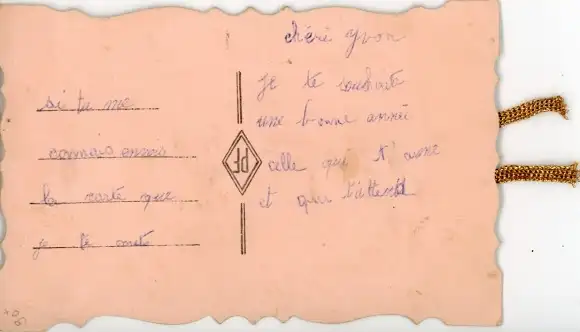 chéri yvon
je te souhaite
une bonne année
celle qui t'aime
et qui t'attend
si tu me
la carte que
je té
PF